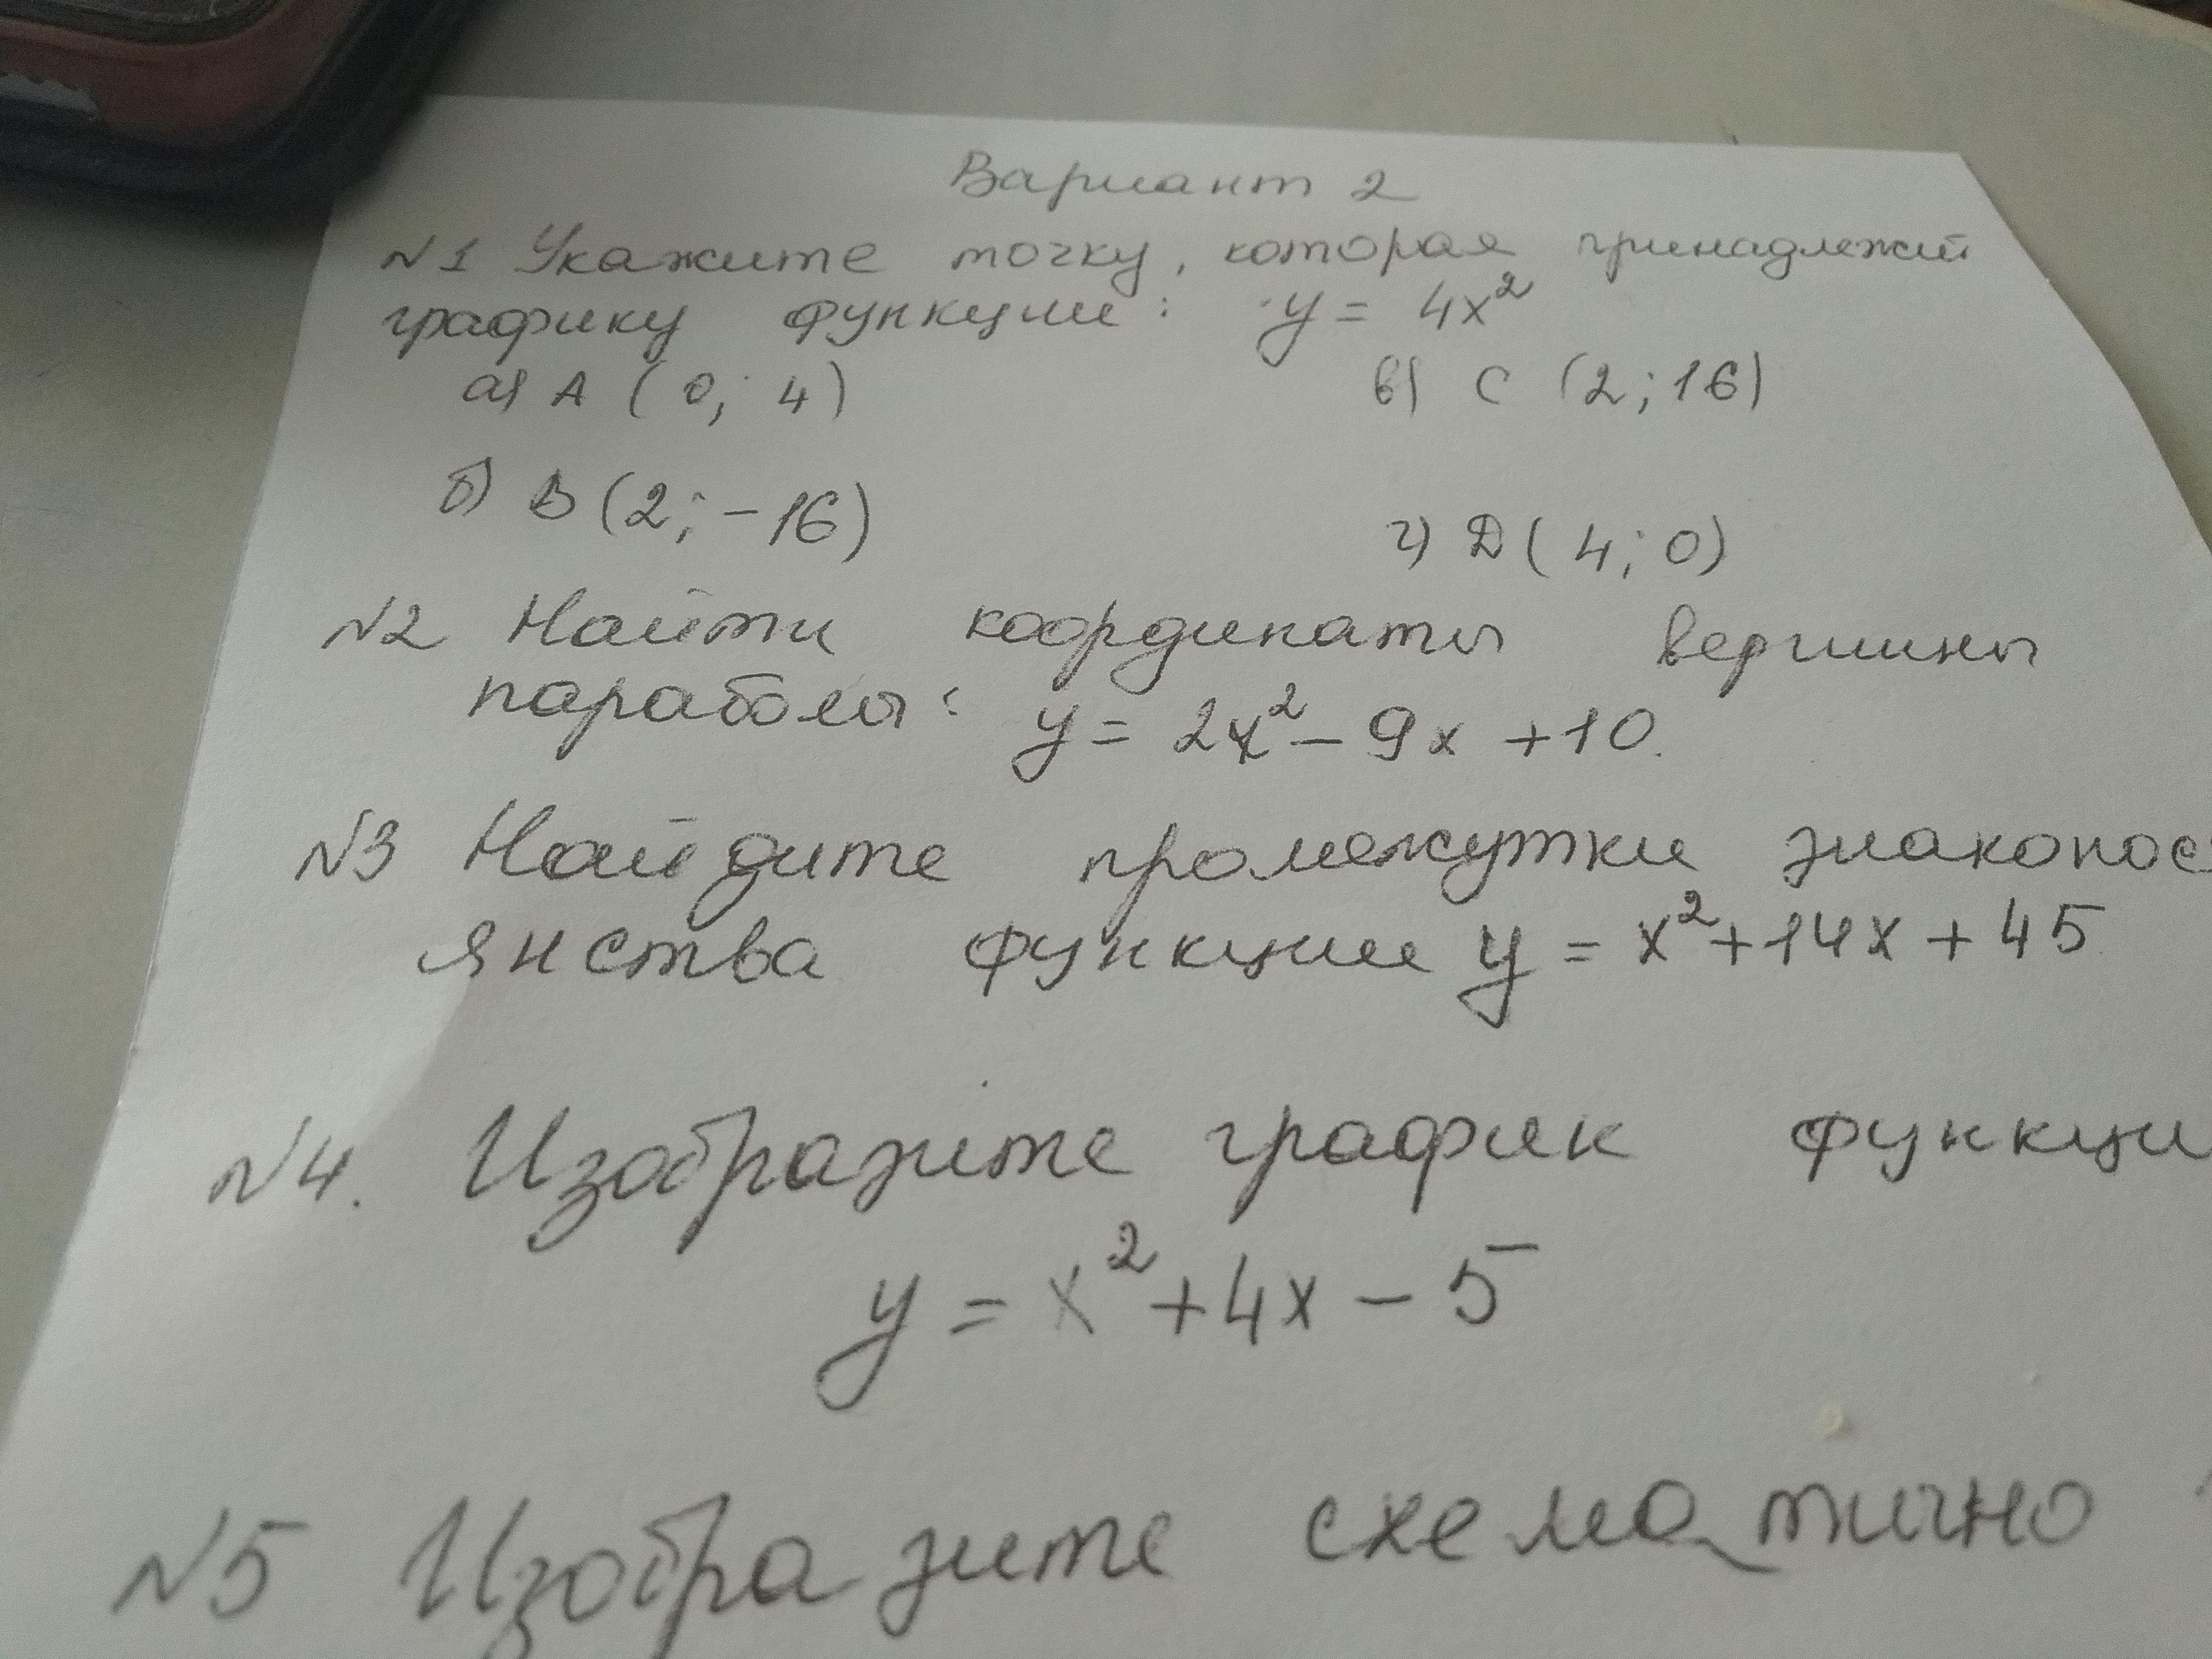 Вариант 2
№1 Укажите точку, которая принадлежит
графику функции: y = 4x²
а) A (0; 4) в) C (2; 16)
б) B (2; -16) г) D (4; 0)
№2 Найти координаты вершины
параболы: y = 2x² - 9x + 10.
№3 Найдите промежутки знакопос
янства функции y = x² + 14x + 45
№4. Изобразите график функци
y = x² + 4x - 5
№5 Изобразите схематично